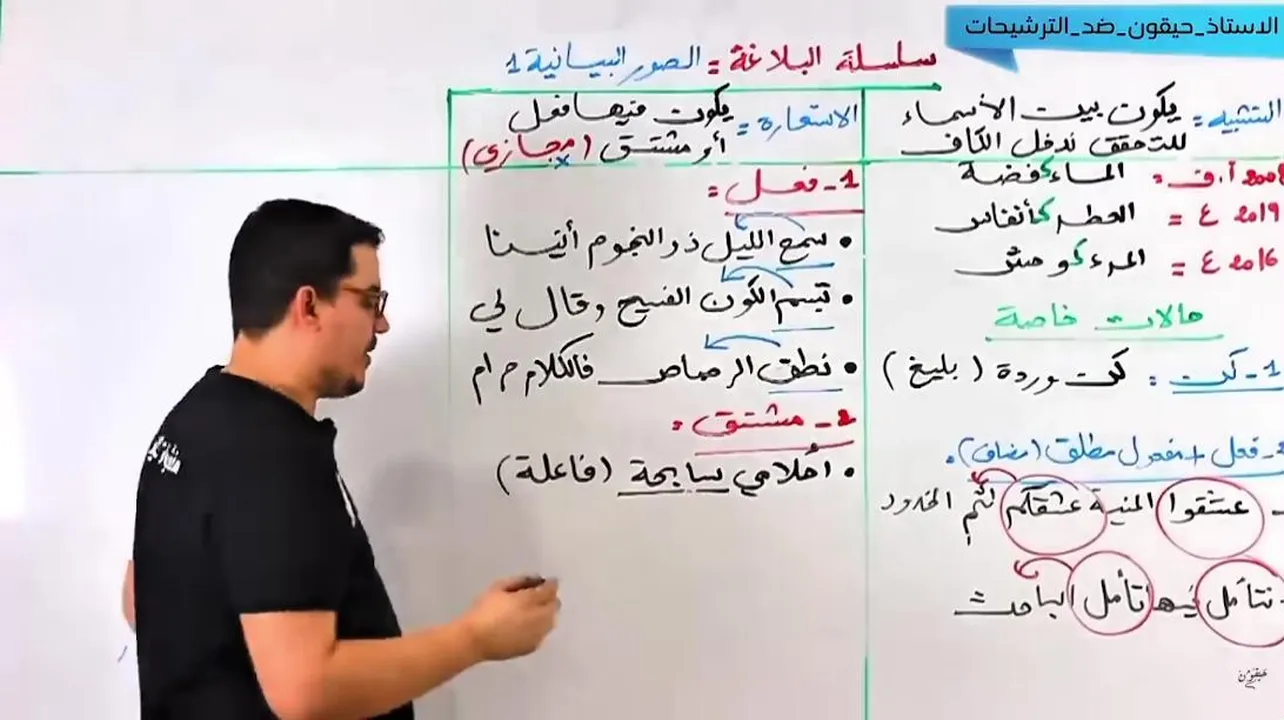 الاستاذ_حيقون_ضد_الترشيحات
سلسلة البلاغة = الصور البيانية 1
التشبيه = يكون بين الأسماء
للتحقق ندخل الكاف
2008 أ.ف = الماء كفضة
2019 ع = العطر كأنفاس
2016 ع = المرء كوحش
حالات خاصة
1 - كن = كن وردة (بليغ)
2 - فعل + مفعول مطلق (مضاف).
- عشقوا المنية عشقكم لثم الخدود
- نتأمل فيها تأمل الباحث
الاستعارة = يكون فيها فعل
أو مشتق (مجازي)
1 - فعل =
• سمع الليل ذو النجوم أنينا
• تبسم الكون الفسيح وقال لي
• نطق الرصاص فالكلام حرام
2 - مشتق =
• أحلامي سابحة (فاعلة)
حيقون